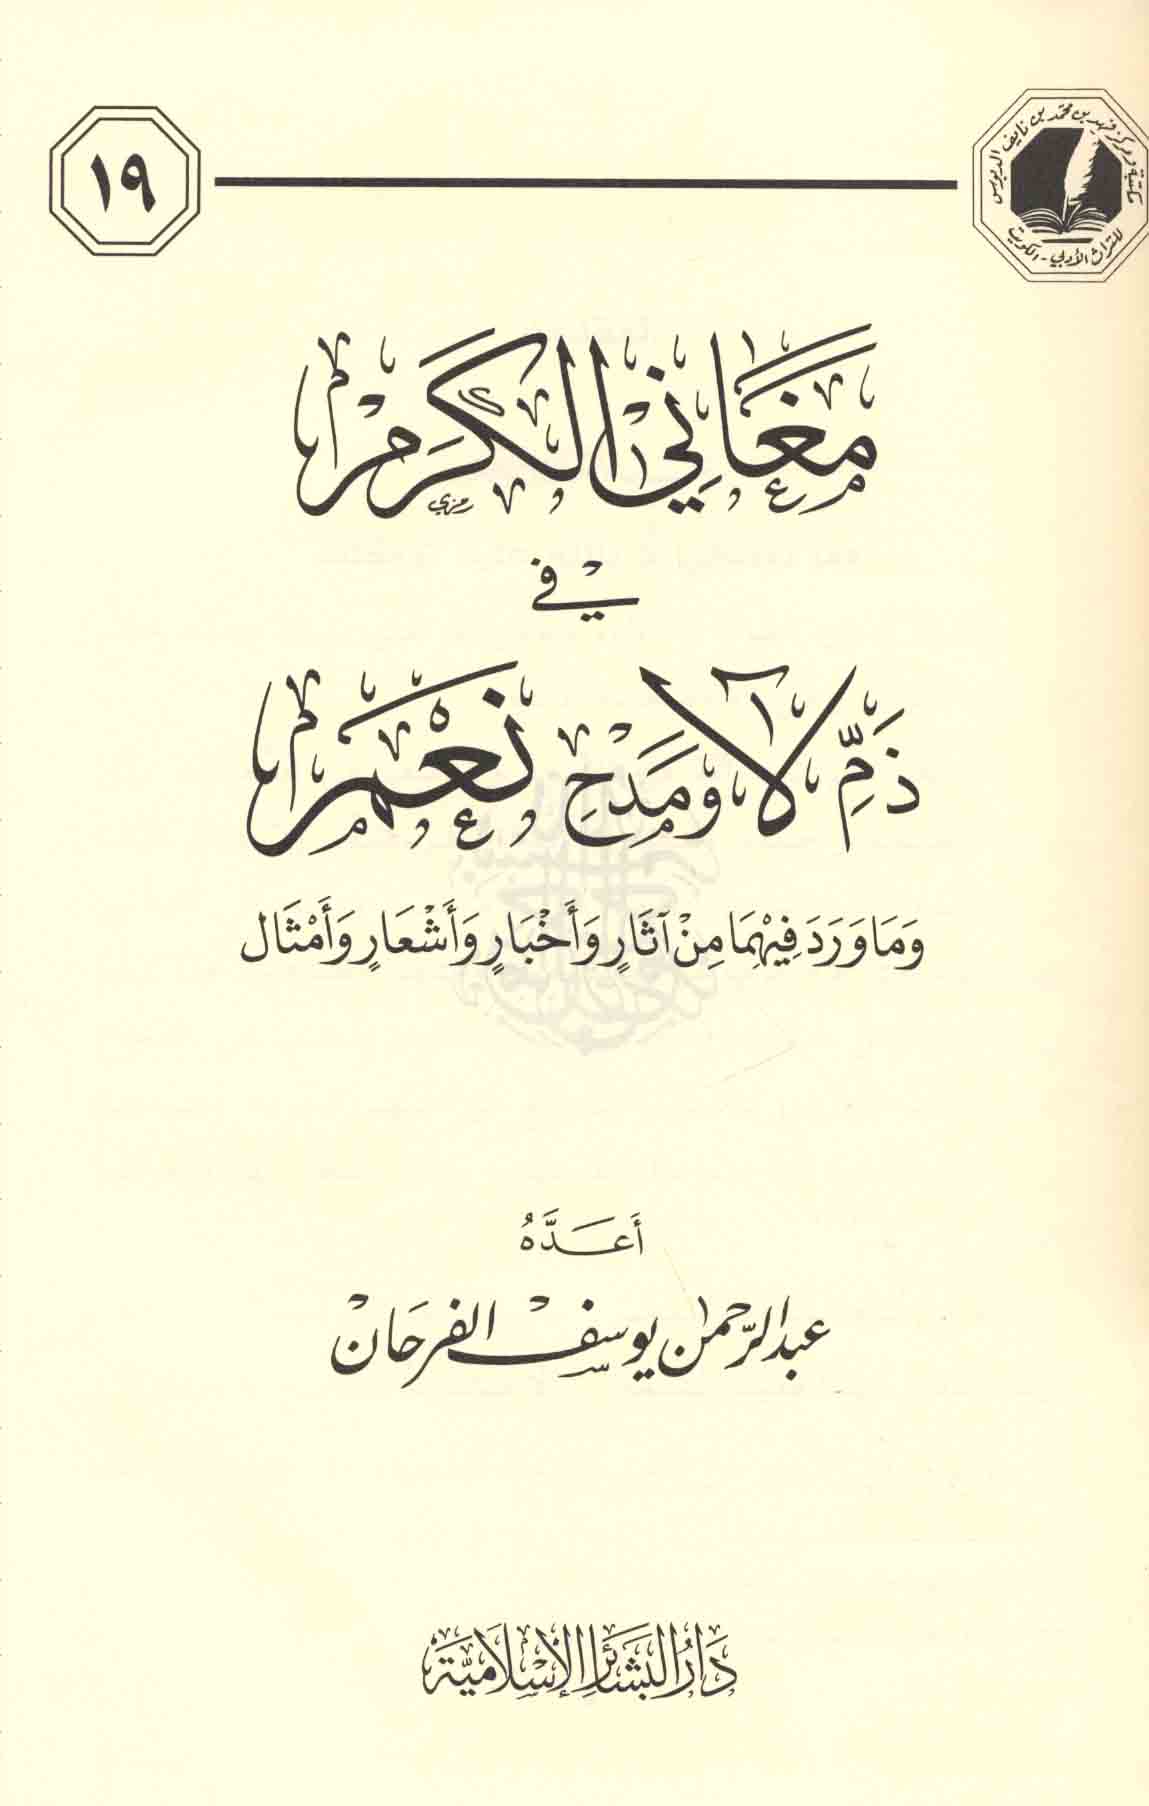 مكتبة ومركز فهد بن محمد بن نايف الدبوس
للتراث الأدبي - الكويت
١٩
مَغَانِي الْكَرَمِ
رمزي
في
ذَمِّ لَا وَمَدْحِ نَعَمْ
وَمَا وَرَدَ فِيْهِمَا مِنْ آثَارٍ وَأَخْبَارٍ وَأَشْعَارٍ وَأَمْثَال
أَعَدَّهُ
عبد الرّحمن يوسف الفرحان
دَارُ الْبَشَائِرِ الْإِسْلَامِيَّة